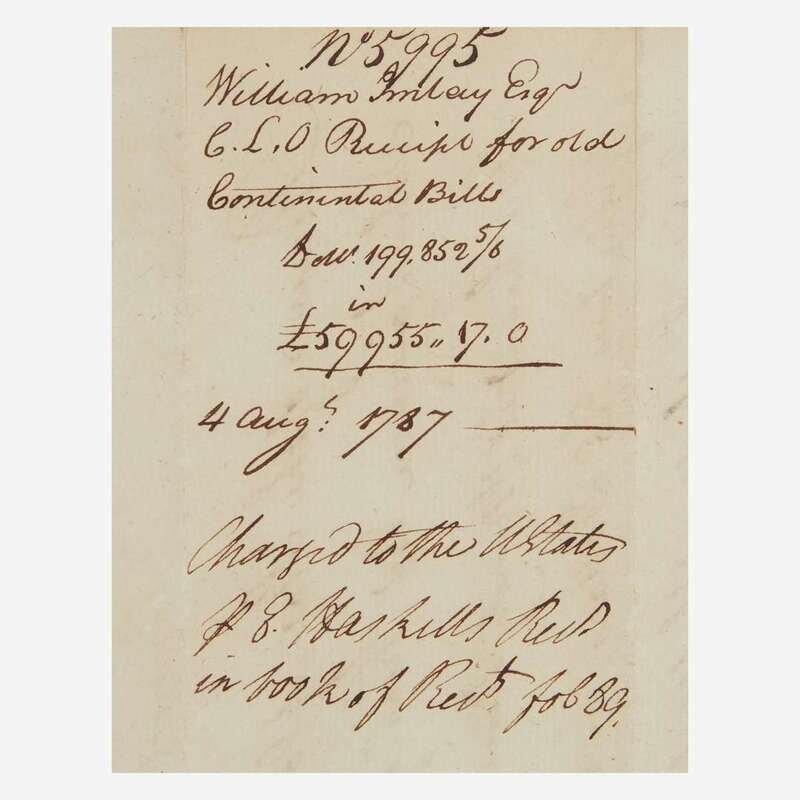 No 5995
William Imlay Esqr
C. L. O Receipt for old
Continental Bills
Dolrs. 199,852 5/6
in
£59955,, 17. 0
4 Augt. 1787
Charged to the UStates
P E. Haskills Rect.
in book of Rects. fol 89.